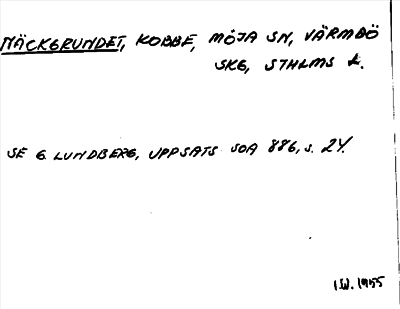 NÄCKGRUNDET, KOBBE, MÖJA SN, VÄRMDÖ
SKG, STHLMS L.
SE G. LUNDBERG, UPPSATS SOA 886, s. 24.
I.W. 1955